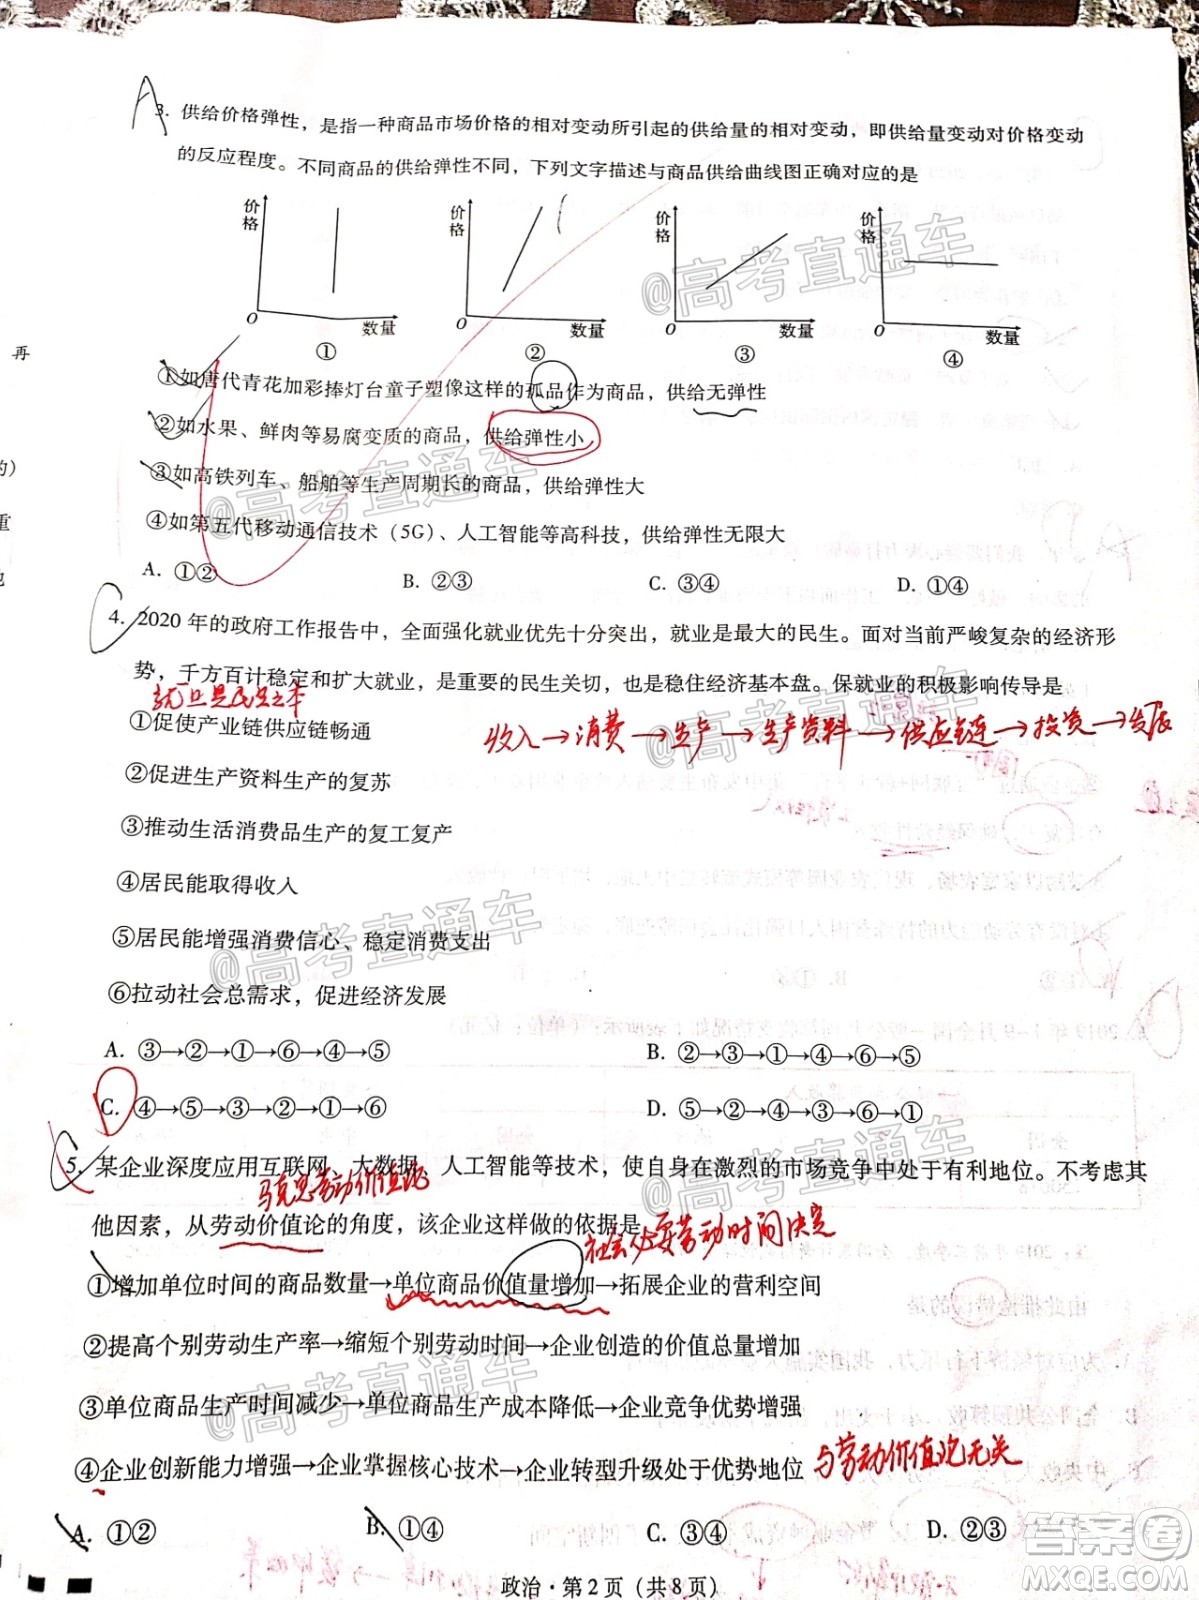 A
3. 供给价格弹性，是指一种商品市场价格的相对变动所引起的供给量的相对变动，即供给量变动对价格变动
的反应程度。不同商品的供给弹性不同，下列文字描述与商品供给曲线图正确对应的是
价格 O 数量 ①
价格 O 数量 ②
价格 O 数量 ③
价格 O 数量 ④
@高考直通车
①如唐代青花加彩捧灯台童子塑像这样的孤品作为商品，供给无弹性
②如水果、鲜肉等易腐变质的商品，供给弹性小
③如高铁列车、船舶等生产周期长的商品，供给弹性大
@高考直通车
④如第五代移动通信技术（5G）、人工智能等高科技，供给弹性无限大
A. ①② B. ②③ C. ③④ D. ①④
C
4. 2020 年的政府工作报告中，全面强化就业优先十分突出，就业是最大的民生。面对当前严峻复杂的经济形
势，千方百计稳定和扩大就业，是重要的民生关切，也是稳住经济基本盘。保就业的积极影响传导是
就业是民生之本
@高考直通车
①促使产业链供应链畅通
收入→消费→生产→生产资料→供应链→投资→发展
②促进生产资料生产的复苏
③推动生活消费品生产的复工复产
④居民能取得收入
⑤居民能增强消费信心、稳定消费支出
@高考直通车
⑥拉动社会总需求，促进经济发展
A. ③→②→①→⑥→④→⑤ B. ②→③→①→④→⑥→⑤
C. ④→⑤→③→②→①→⑥ D. ⑤→②→④→③→⑥→①
C
5. 某企业深度应用互联网、大数据、人工智能等技术，使自身在激烈的市场竞争中处于有利地位。不考虑其
马克思劳动价值论
@高考直通车
他因素，从劳动价值论的角度，该企业这样做的依据是
社会必要劳动时间决定
①增加单位时间的商品数量→单位商品价值量增加→拓展企业的营利空间
②提高个别劳动生产率→缩短个别劳动时间→企业创造的价值总量增加
③单位商品生产时间减少→单位商品生产成本降低→企业竞争优势增强
@高考直通车
④企业创新能力增强→企业掌握核心技术→企业转型升级处于优势地位
与劳动价值论无关
A. ①② B. ①④ C. ③④ D. ②③
政治·第 2 页（共 8 页）
答案圈
MXQE.COM
再
的）
重